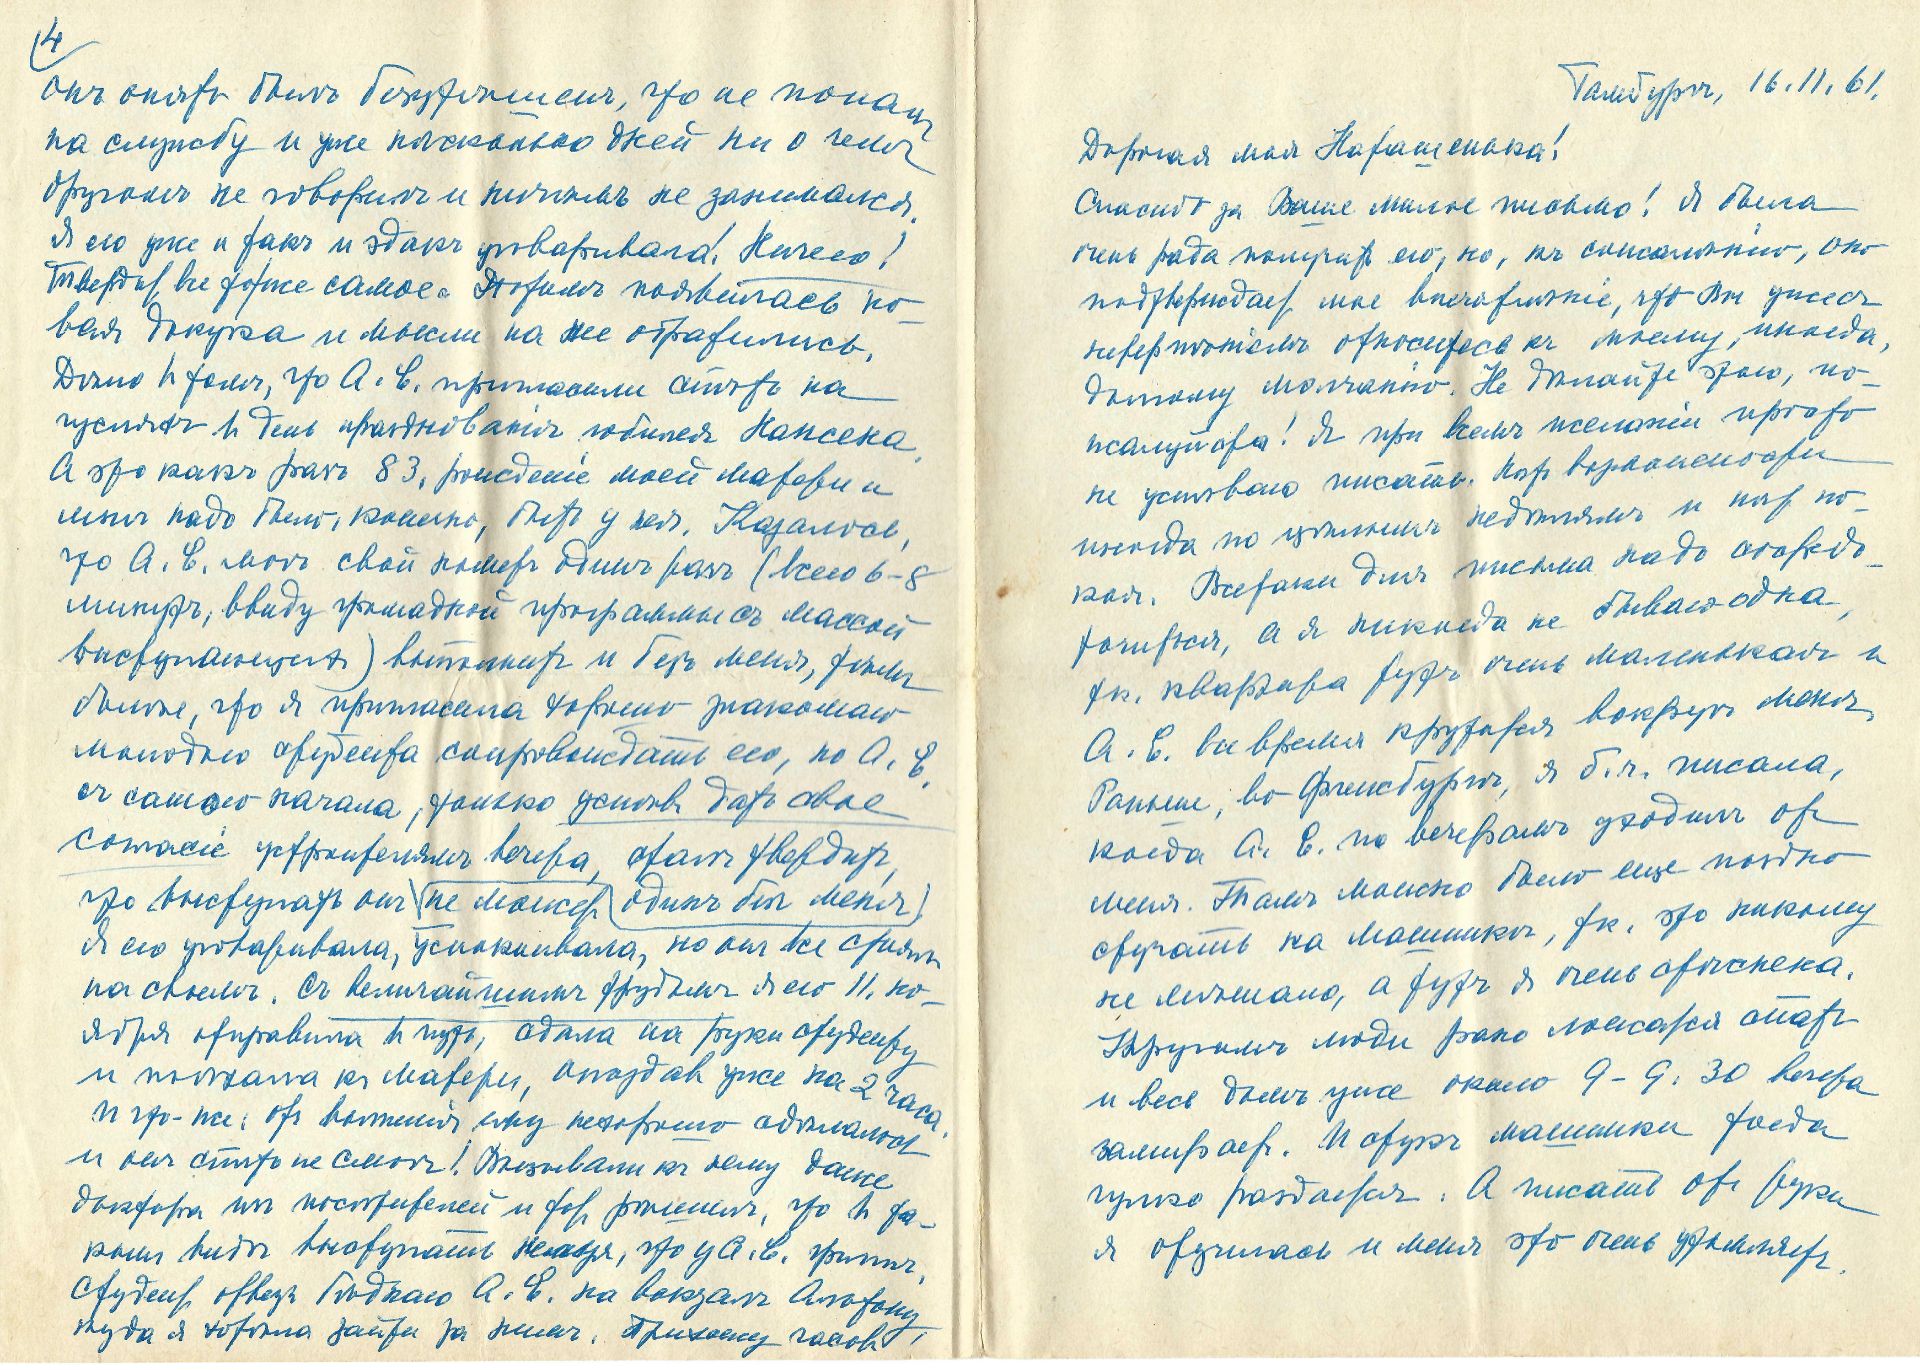 4
онъ опять былъ безутѣшенъ, что не попалъ
на службу и уже нѣсколько дней ни о чемъ
другомъ не говорилъ и ничѣмъ не занимался.
Я его уже и такъ и эдакъ уговаривала! Ничего!
Твердитъ все то же самое. Потомъ появилась но-
вая докука и мысли на нее обратились.
Дѣло въ томъ, что А. Е. пригласили спѣть на
гусляхъ въ день празднованія юбилея Нансена.
А это какъ разъ 83. рожденіе моей матери и
мнѣ надо было, конечно, быть у нея. Казалось,
что А. Е. могъ свой номеръ одинъ разъ (всего 6-8
минутъ, ввиду громадной программы съ массой
выступающихъ) выполнить и безъ меня, тѣмъ
болѣе, что я пригласила хорошо знакомаго
молодого студента сопровождать его, но А. Е.
съ самаго начала, только успѣвъ дать свое
согласіе устроителямъ вечера, сталъ твердить,
что выступать онъ не можетъ одинъ безъ меня.
Я его уговаривала, успокаивала, но онъ все стоялъ
на своемъ. Съ величайшимъ трудомъ я его 11. но-
ября отправила въ путь, сдала на руки студенту
и поѣхала къ матери, опоздавъ уже на 2 часа.
И что-же: отъ волненія ему нехорошо сдѣлалось
и онъ спѣть не смогъ! Вызывали къ нему даже
доктора изъ посѣтителей и тотъ рѣшилъ, что въ та-
комъ видѣ выступать нельзя, что у А. Е. гриппъ.
Студентъ отвезъ бѣднаго А. Е. на вокзалъ Альтону,
куда я хотѣла зайти за нимъ. Прихожу часовъ
Гамбургъ, 16.11.61.
Дорогая моя Наташенька!
Спасибо за Ваше милое письмо! Я была
очень рада получить его, но, къ сожалѣнію, оно
подтверждаетъ мое впечатлѣніе, что Вы ужасъ
нетерпѣніемъ относитесь къ моему, иногда,
долгому молчанію. Не дѣлайте этого, по-
жалуйста! Я при всемъ желаніи просто
не успѣваю писать. Нѣтъ возможности
иногда по цѣлымъ недѣлямъ и нѣтъ по-
коя. Всетаки для письма надо сосредо-
точиться, а я никогда не бываю одна,
тк. квартира тутъ очень маленькая и
А. Е. все время крутится вокругъ меня.
Раньше, во Фленсбургѣ, я б.ч. писала,
когда А. Е. по вечерамъ уходилъ отъ
меня. Тамъ можно было еще поздно
стучать на машинкѣ, тк. это никому
не мѣшало, а тутъ я очень стѣснена.
Кругомъ люди рано ложатся спать
и весь домъ уже около 9-9.30 вечера
замираетъ. И стукъ машинки тогда
гулко раздается. А писать отъ руки
я отучилась и меня это очень утомляетъ.